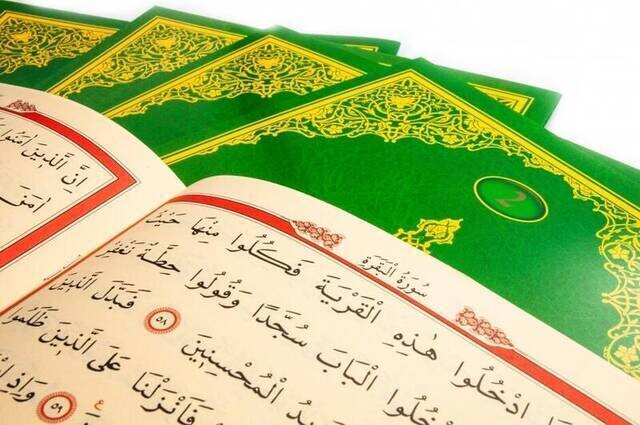 2
سُورَةُ الْبَقَرَةِ
ادْخُلُوا هٰذِهِ الْقَرْيَةَ فَكُلُوا مِنْهَا حَيْثُ
الْبَابَ سُجَّدًا وَقُولُوا حِطَّةٌ نَغْفِرْ
الْمُحْسِنِينَ ٥٨ فَبَدَّلَ الَّذِينَ
فَاَنْزَلْنَا عَلَى الَّذِينَ ظَلَمُوا
٥٩ وَاِذِ
اِنَّ الَّذِينَ اٰمَنُوا
اٰمَنَ